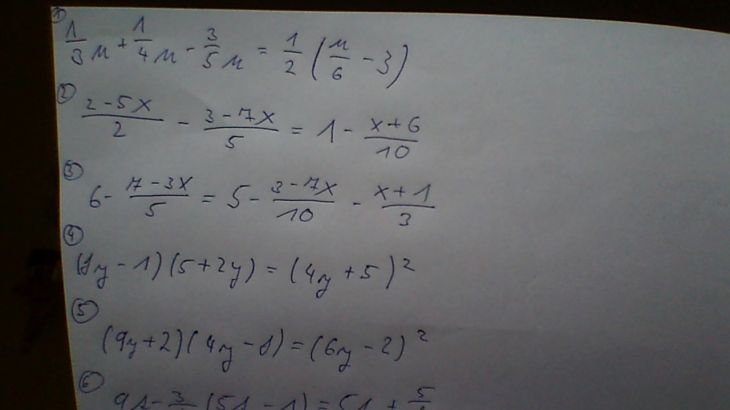 1) 1/3 u + 1/4 u - 3/5 u = 1/2 (u/6 - 3)
2) (2-5x)/2 - (3-7x)/5 = 1 - (x+6)/10
3) 6 - (7-3x)/5 = 5 - (3-7x)/10 - (x+1)/3
4) (8y-1)(5+2y) = (4y+5)²
5) (9y+2)(4y-8) = (6y-2)²
6)